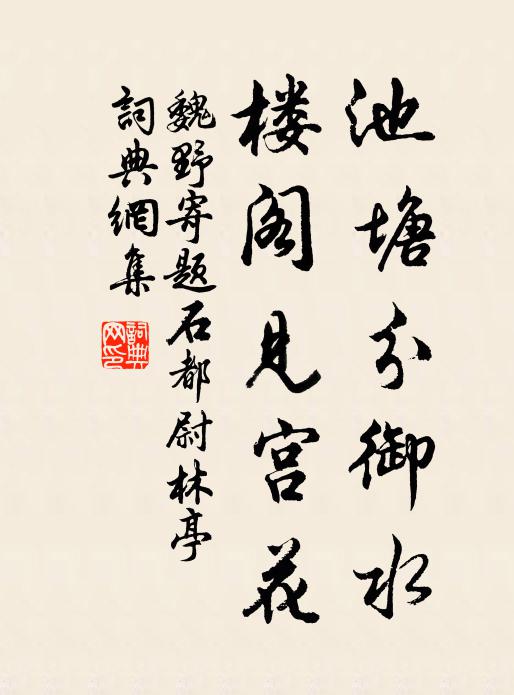 池塘分御水
楼阁见宫花
魏野寄题石都尉林亭
詞典網集
詞典
网印